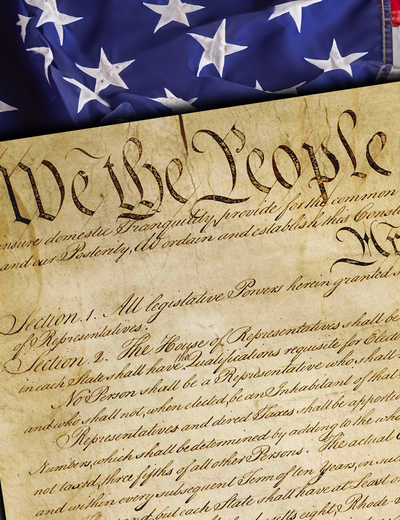 We the People
insure domestic Tranquility, provide for the common
and our Posterity, do ordain and establish this Const
Section. 1. All legislative Powers herein granted s
of Representatives.
Section. 2. The House of Representatives shall be
in each State shall have the Qualifications requisite for Elec
No Person shall be a Representative who shall
and who shall not, when elected, be an Inhabitant of that
Representatives and direct Taxes shall be apporti
Numbers, which shall be determined by adding to the who
not taxed, three fifths of all other Persons. The actual
and within every subsequent Term of ten Years, in suc
but each State shall have at Least
eight, Rhode